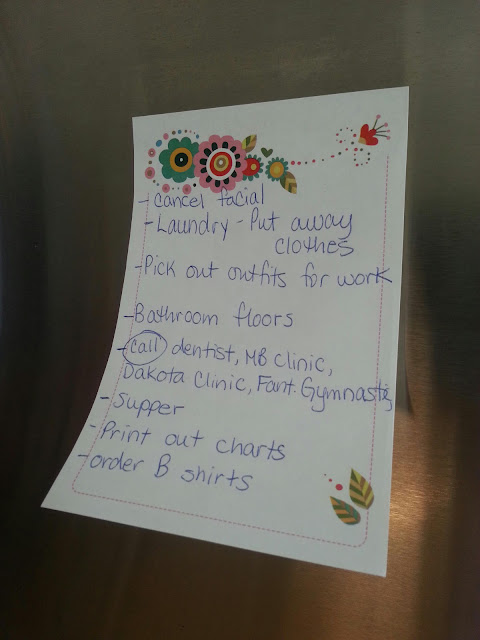 - cancel facial
- Laundry - Put away
clothes
- Pick out outfits for work
- Bathroom floors
- call dentist, MB clinic,
Dakota Clinic, Fant. Gymnastix
- supper
- Print out charts
- order B shirts